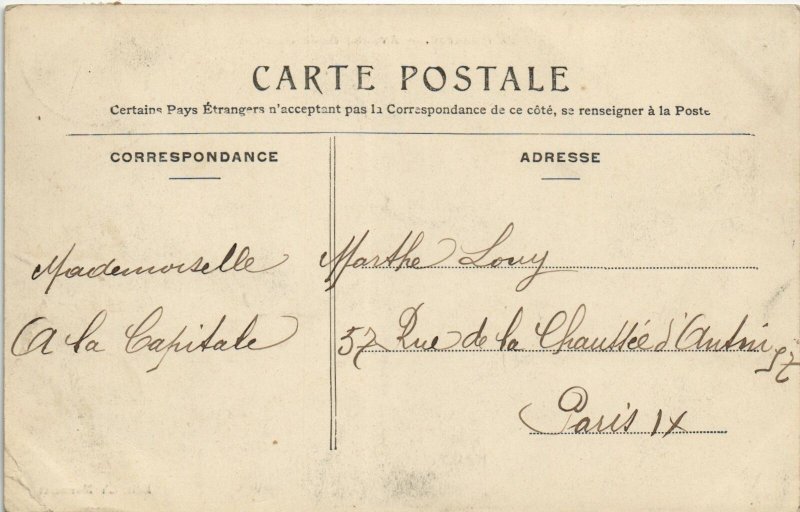 CARTE POSTALE
Certains Pays Étrangers n'acceptant pas la Correspondance de ce côté, se renseigner à la Poste
CORRESPONDANCE
ADRESSE
Mademoiselle Marthe Louy
A la Capitale 57 Rue de la Chaussée d'Antin 57
Paris IX